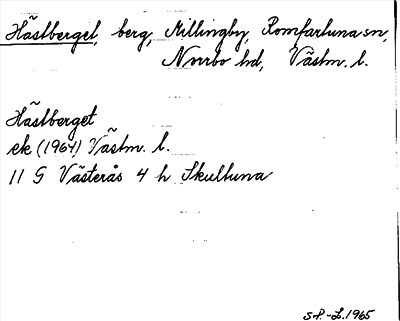 Hästberget, berg, Millingby, Romfartuna sn,
Norrbo hd, Västm. l.
Hästberget
ek (1964) Västm. l.
11 G Västerås 4 h Skultuna
S.P.-L. 1965